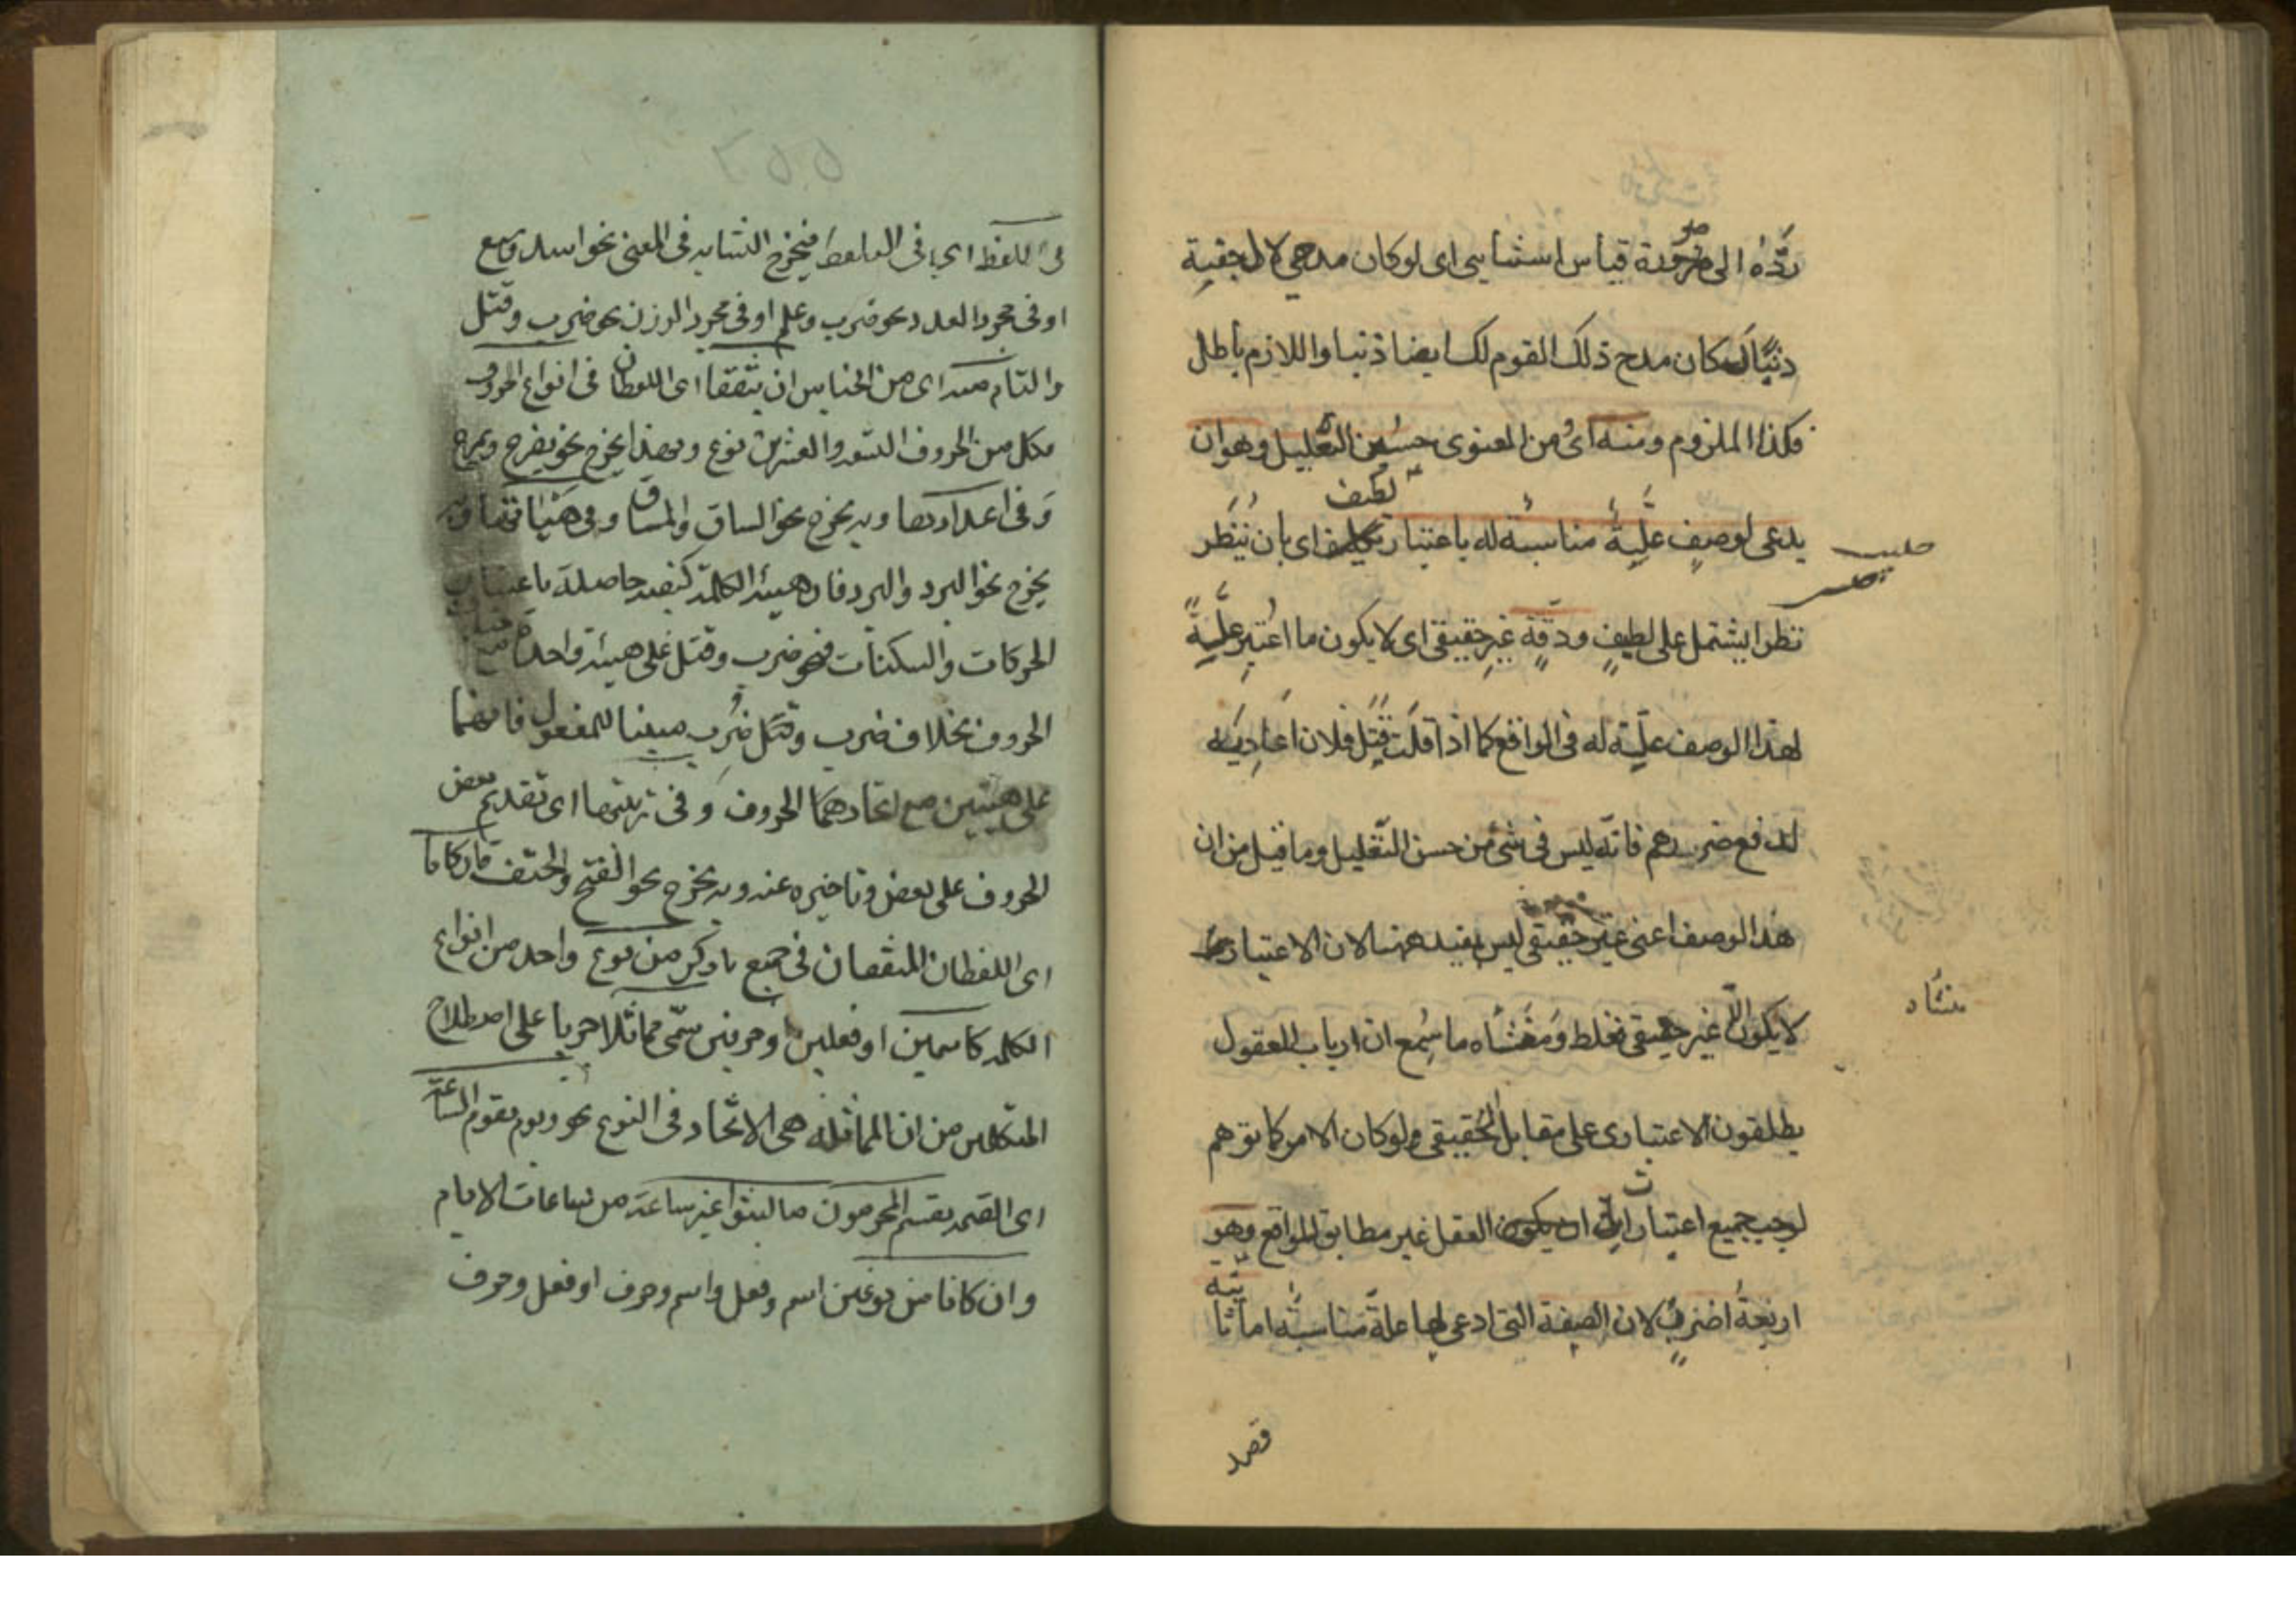 ردّه الى صورة قياس استثنايى اى لو كان مدحى لال جفنة
ذنبًا لكان مدح ذلك القوم لك ايضا ذنبا واللازم باطل
فكذا الملزوم ومنه اى من المعنوى حسن التعليل وهو ان
لطيف
يدعى لوصف علّية مناسبة له باعتبار اى بان ينظر
نظرا يشتمل على لطيف ودقة غير حقيقى اى لا يكون ما اعتبر علّية
لهذا الوصف علّية له فى الواقع كما اذا قلت قتل فلان اعاديه
لدفع ضررهم فانّه ليس فى شئ من حسن التّعليل وما قيل من ان
هذا الوصف اعنى غير حقيقى ليس بمفيد ههنا لان الاعتبار
لا يكون الّا غير حقيقى فغلط ومنشأه ما سمع ان ارباب المعقول
منشاه
يطلقون الاعتبارى على مقابل الحقيقى ولو كان الامر كما توهم
لوجب جميع اعتبارات العقل غير مطابق للواقع وهو
اربعة اضرب لان الصفة التى ادعى لها علّة مناسبة اما ثا
بتة
قصد
فى اللفظ اى فى التلفظ فيخرج التشابه فى المعنى نحو اسد وسبع
او فى مجرد العدد نحو ضرب وعلم او فى مجرد الوزن نحو ضرب وقتل
والتام منه اى من الجناس ان يتفقا اى اللفظان فى انواع الحروف
فكل من الحروف التسعة والعشرين نوع وبهذا يخرج نحو يفرح ويمرح
وفى اعدادها وبه يخرج نحو الساق والمساق وفى هيئاتها وبه
يخرج نحو البرد والبرد فان هيئة الكلمة كيفية حاصلة باعتبار
الحركات والسكنات فنحو ضرب وقتل على هيئة واحدة مع
الحروف بخلاف ضرب وقتل ضرب مبنيا للمفعول فانهما
على هيئتين مع اتحادهما الحروف وفى ترتيبها اى تقديم بعض
الحروف على بعض وتاخيره عنه وبه يخرج نحو الفتح والحتف فان كانا
اى اللفظان المتفقان فى جميع ما ذكر من نوع واحد من انواع
الكلمة كاسمين او فعلين او حرفين سمّى مماثلا جريا على اصطلاح
المتكلمين من ان المماثلة هى الاتّحاد فى النوع نحو ويوم تقوم الساعة
اى القيمة يقسم المجرمون ما لبثوا غير ساعة من ساعات الايام
وان كانا من نوعين اسم وفعل واسم وحرف او فعل وحرف